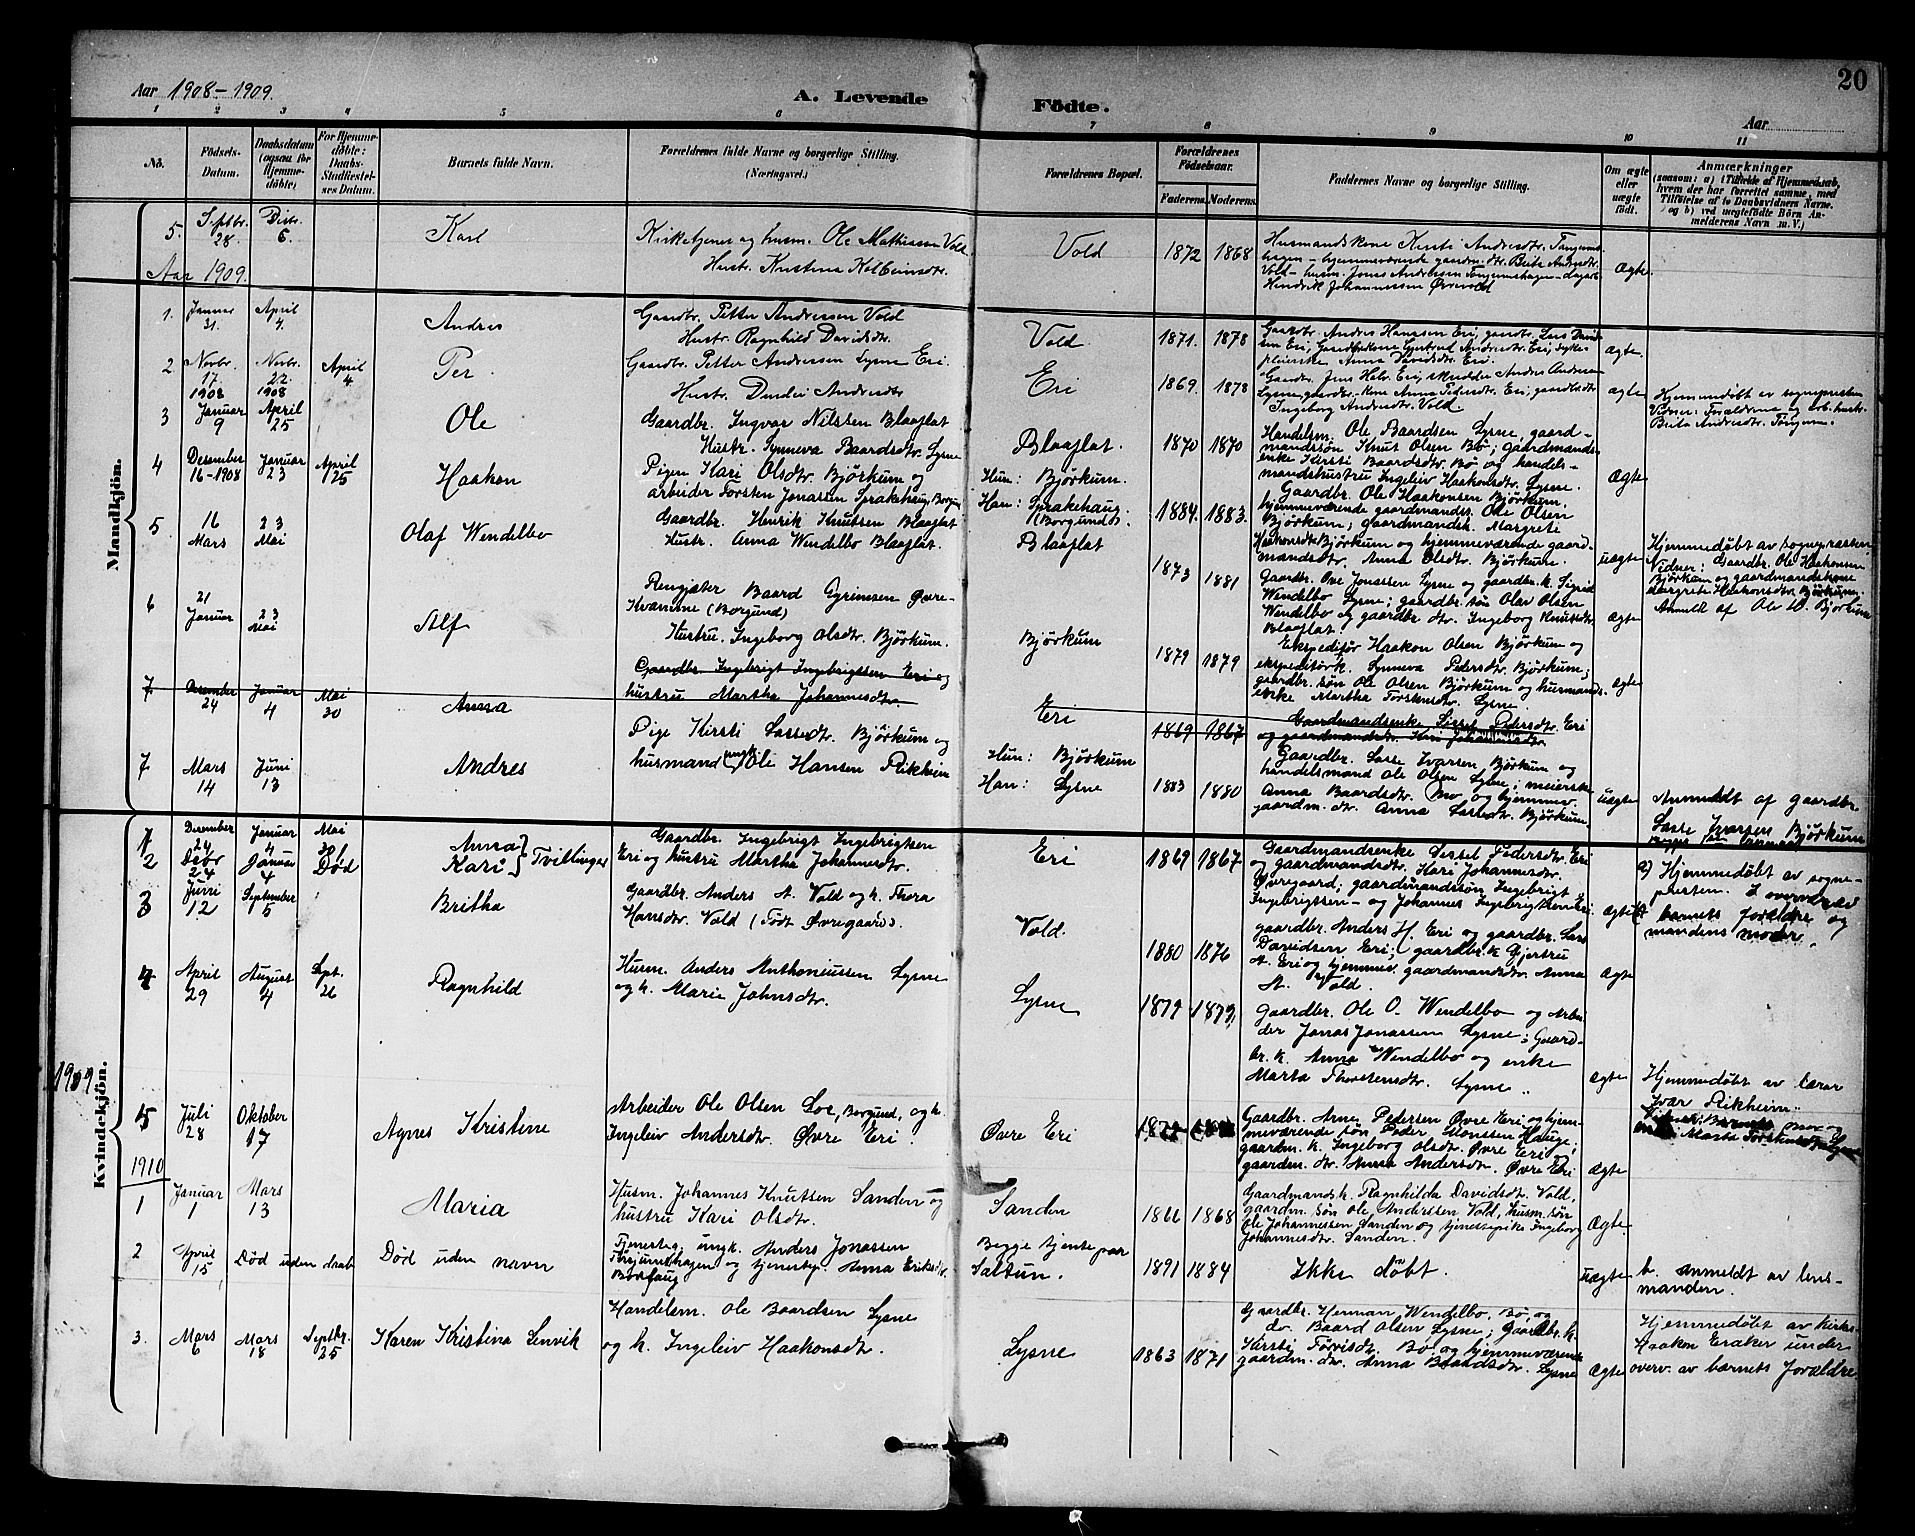 20
Aar 1908-1909.
A. Levende Födte.
Aar
1 2 3 4 5 6 7 8 9 10 11
No.
Födsels-Datum.
Daabsdatum (ogsaa for Hjemmedöbte)
For Hjemmedöbte: Daabs-Stadfæstelses Datum.
Barnets fulde Navn.
Forældrenes fulde Navne og borgerlige Stilling.
(Næringsvei.)
Forældrenes Bopæl.
Forældrenes Födselsaar.
Faderens. Moderens.
Faddernes Navne og borgerlige Stilling.
Om ægte eller uægte födt.
Anmærkninger
(saasom: a) i Tilfælde af Hjemmedaab, hvem der har forrettet samme, med Tilföielse af to Daabsvidners Navne. og b) ved uægtefödte Börn Anmelderens Navn m. V.)
5. Septbr. 28. Dcbr. 6.
Karl
Kirketjener og husm. Ole Mathiassen Vold
Hustr. Kristina Kolbeinsdtr.
Vold
1872 1868
Husmandskone Kirsti Andersdtr. Tønjums-
hagen - hjemmeværende gaardm. dtr. Brita Andersdtr.
Vold - husm. Jens Andersen Tønjumshagen - dagarb.
Hendrik Johannessen Øvrevold
ægte.
Aar 1909.
Mandkjön.
1. Januar 31. April 4.
Andres
Gaardbr. Petter Andressen Vold
Hustr. Ragnhild Davidsdtr.
Vold
1871. 1878
Gaardbr. Andres Hanssen Eri, gardbr. Lars David-
sen Eri; Gardbrkone Gjertrud Andresdtr. Eri, syke-
pleierske Anna Davidsdtr. Eri.
ægte.
2 Novbr. 17. 1908 Novbr. 22. 1908 April 4.
Per
Gaardbr. Petter Andersen Lysne Eri.
Hustr. Durdei Andresdtr
Eri
1869. 1878
Gardbr. Jens Halv. Eri, skrædder Andres Andersen
Lysne, gaardbr. kone Anna Pedersdtr. Eri, gaardbrdtr
Ingeborg Andresdtr. Vold.
ægte
Hjemmedøbt av sognepresten
Vidner: Forældrene og arb. hustr.
Brita Andresdtr. Tønjum.
3 Januar 9 April 25
Ole
Gaardbr. Ingvar Nilssen Blaaflat
Hustr. Synneva Baardsdtr. Lysne
Blaaflat.
1870 1870
Handelsm. Ole Baardsen Lysne, gaard-
mandssøn Knut Olsen Bø; Gaardmands-
enke Kirsti Baardsdtr. Bø og handels-
mandshustru Ingeleiv Haakonsdtr. Lysne.
Ægte
4 Desember 16-1908 Januar 23 April 25
Haakon
Pigen Kari Olsdtr. Bjørkum og
arbeider Torsten Jonassen Sprakehaug, Borgund
Hun: Bjørkum.
Han: Sprakehaug.
(Borgund).
1884. 1883.
Gaardbr. Ole Haakonsen Bjørkum.
hjemmeværende gaardmands. Ole Olsen
Bjørkum; Gaardmandsk. Margrete
Haakonsdtr. Bjørkum og hjemmeværende gaard-
mandsdtr. Anna Olsdtr. Bjørkum.
uægte
Hjemmedøbt av sognepræsten
Vidner: Gaardbr. Ole Haakonsen
Bjørkum og gaardmandskone
Margrete Haakonsdtr. Bjørkum.
Anmeldt af Ole H. Bjørkum
5 16 Mars 23 Mai
Olaf Wendelbo
Gaardbr. Henrik Knutsen Blaaflat
Hustr. Anna Wendelbo Blaaflat.
Blaaflat
1873 1881
Gaardbr. Ove Jonssen Lysne og gaardbr. k. Sigrid
Wendelbo Lysne; gaardbr. søn Olav Olsen
Wendelbo og gaardbr. dtr. Ingeborg Knutsdtr
Blaaflat.
ægte
6 21 Januar 23 Mai
Alf
Rengjøter Baard Gyrimsen Øvre-
Kvamme (Borgund)
Hustru. Ingeborg Olsdtr. Bjørkum.
Bjørkum
1879 1879
Ekspeditør Haakon Olsen Bjørkum og
ekspeditørk. Synneva Pedersdtr. Bjørkum;
gaardbr. søn Ole Olsen Bjørkum og husmands-
enke Martha Torstensdtr. Lysne.
ægte
7. Desember 24 Januar 4 Mai 30
Anna
Gaardbr. Ingebrigt Ingebrigtsen Eri og
hustru Martha Johannesdtr.
Eri
1869 1867
Gaardmandsenke Sissel Pedersdtr. Eri
og gaardmandsdtr. Kari Johannesdtr
7. Mars 14 Juni 13
Andres
Pige Kirsti Lassedtr. Bjørkum og
husmand ungk. Ole Hansen Rikheim
Hun: Bjørkum
Han: Lysne
1883 1880
Gaardbr. Lasse Ivarsen Bjørkum og
handelsmand Ole Olsen Lysne; meierske
Anna Baardsdtr. Mo og hjemmev.
gaardm. dtr. Anna Lassedtr. Bjørkum.
uægte
Anmeldt af gaardbr.
Lasse Ivarsen Bjørkum
1909
Kvindekjön.
1 Desember 24 Januar 4 Mai 30
Anna
2 Desbr 24 Januar 4 Død
Kari } Tvillinger
Gaardbr. Ingebrigt Ingebrigtsen
Eri og hustru Martha Johannesdtr.
Eri
1869 1867
Gaardmandsenke Sissel Pedersdtr. Eri
og gaardmandsdtr. Kari Johannesdtr.
Øvregaard; gaardmandssøn Ingebrigt
Ingebrigtsen - og Johannes Ingebrigtsen Eri.
Ægte
a) Hjemmedøbt av sogne-
presten. I overvær av
barnets forældre og
mandens moder.
3 Juni 12 September 5
Britha
Gaardbr. Anders A. Vold og k. Thora
Hansdtr. Vold (Født Øvregaard).
Vold.
1880 1876
gaardbr. Anders H. Eri og gaardbr. Lars
Davidsen Eri; gaardbr. k. Gjertru
A. Eri og hjemmev. gaardmandsdtr. Anna
A. Vold.
Ægte
4 April 29 August 4 Sept. 26
Ragnhild
Husm. Anders Anthoniussen Lysne
og k. Marie Johnsdtr.
Lysne
1879 1879
Gaardbr. Ole O. Wendelbo og Arbei-
der Jonas Jonassen Lysne; Gaard-
br. k. Anna Wendelbo og enke
Marta Thorstensdtr. Lysne..
Ægte
Hjemmedøbt av lærar
Ivar Rikheim..
5 Juli 28 Oktober 17
Agnes Kristine
Arbeider Ole Olsen Loe, Borgund, og k.
Ingeleiv Andersdtr. Øvre Eri.
Øvre Eri
Gaardbr. Arne Pedersen Øvre Eri og hjem-
meværende søn Peder Monssen Hauge;
gaardm. k. Ingeborg Olsdtr. Øvre Eri og
gaardm. dtr. Anna Andersdtr. Øvre Eri
Ægte
1910
1 Januar 1 Mars 13
Maria
Husm. Johannes Knutsen Sanden og
hustru Kari Olsdtr.
Sanden
1866 1868
Gaardmandsk. Ragnhilda Davidsdtr. Vold,
gaardm. søn Ole Anderssen Vold, husm. søn
Ole Johannessen Sanden og tjenestepike Ingeborg
Johannesdtr. Sanden.
Ægte.
2 April 15 Død uden daab
Død uden navn
Tjenesteg. ungk. Anders Jonassen
Tønjumshagen og tjenestep. Anna Eriksdtr.
Borlaug
Begge tjenste par
Saltun.
1891 1884
Ikke døbt.
uægte
b. anmeldt av lens-
manden.
3. Mars 6 Mars 18 Septbr. 25
Karen Kristina Lenvik
Handelsm. Ole Baardsen Lysne
og k. Ingeleiv Haakonsdtr.
Lysne
1863 1871
Gaardbr. Herman Wendelbo, Bø, og
dr. Baard Olsen Lysne; Gaardbr. k.
Kirsti Torrisdtr. Bø og hjemmeværende
gaardm. dtr. Anna Baardsdtr. Lysne
Ægte
Hjemmedøbt av kirks.
Haakon Eraker under
overv. av barnets forældre